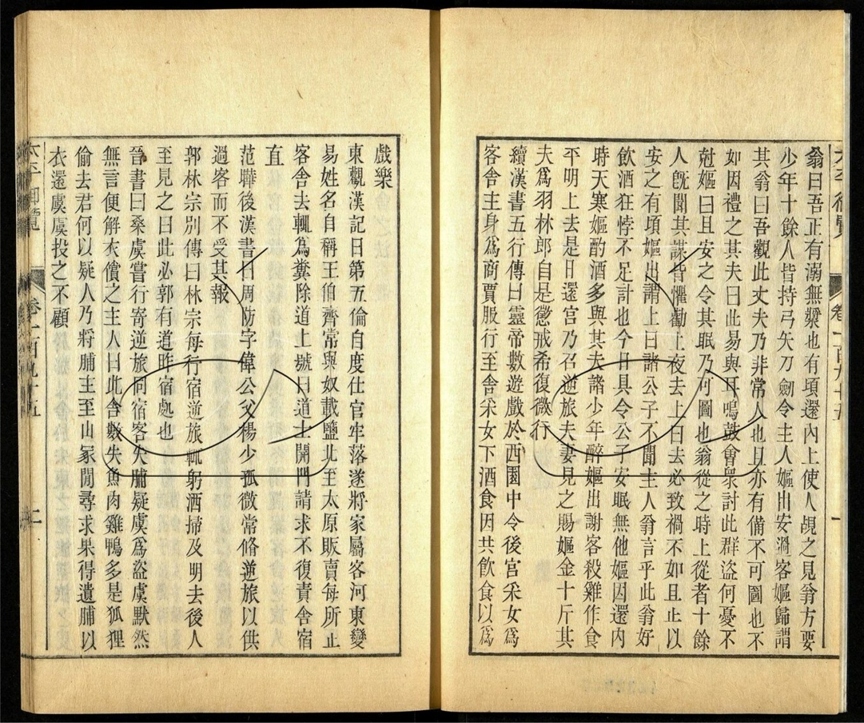 翁曰吾正有溺無漿也有頃還內上使人覘之見翁方要
少年十餘人皆持弓矢刀劍令主人嫗出安過客嫗歸謂
其翁曰吾觀此丈夫乃非常人也且亦有備不可圖也不
如因禮之其夫曰此易與耳鳴鼓會眾討此群盜何憂不
尅嫗曰且安之令其眠乃可圖也翁從之時上從者十餘
人既聞其謀皆懼勸上夜去上曰去必致禍不如且止以
安之有頃嫗出謂上曰諸公子不聞主人翁言乎此翁好
飲酒狂悖不足計也今日具令公子安眠無他嫗因還內
時天寒嫗酌酒多與其夫諸少年醉嫗出謝客殺雞作食
平明上去是日還宮乃召逆旅夫妻見之賜嫗金十斤其
夫為羽林郎自是懲戒希復微行
續漢書五行傳曰靈帝數遊戲於西園中令後宮采女為
客舍主身為商賈服行至舍采女下酒食因共飲食以為
戲樂
東觀漢記曰第五倫自度仕宦牢落遂將家屬客河東變
易姓名自稱王伯齊常與奴載鹽北至太原販賣每所止
客舍去輒為糞除道上號曰道士開門請求不復責舍宿
直
范曄後漢書曰周防字偉公父楊少孤微常脩逆旅以供
過客而不受其報
郭林宗別傳曰林宗每行宿逆旅輒躬洒掃及明去後人
至見之曰此必郭有道昨宿處也
晉書曰桑虞嘗行寄逆旅同宿客失脯疑虞為盜虞默然
無言便解衣償之主人曰此舍數失魚肉雞鴨多是狐狸
偷去君何以疑人乃將脯主至山冢間尋求果得遺脯以
衣還虞虞投之不顧
卷一百九十五